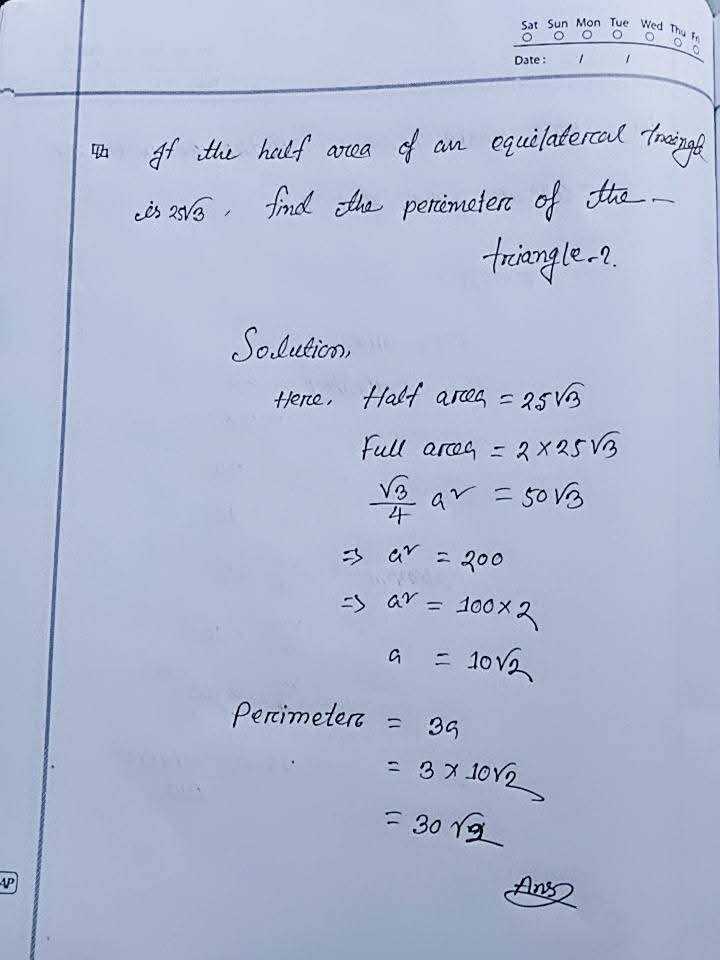 Sat Sun Mon Tue Wed Thu Fri
Date: / /
If the half area of an equilateral traingle
is 25√3, find the perimeter of the
triangle-?
Solution,
Here, Half area = 25√3
Full area = 2 × 25√3
√3/4 a² = 50√3
=> a² = 200
=> a² = 100×2
a = 10√2
Perimeter = 3a
= 3 × 10√2
= 30√2
Ans
AP